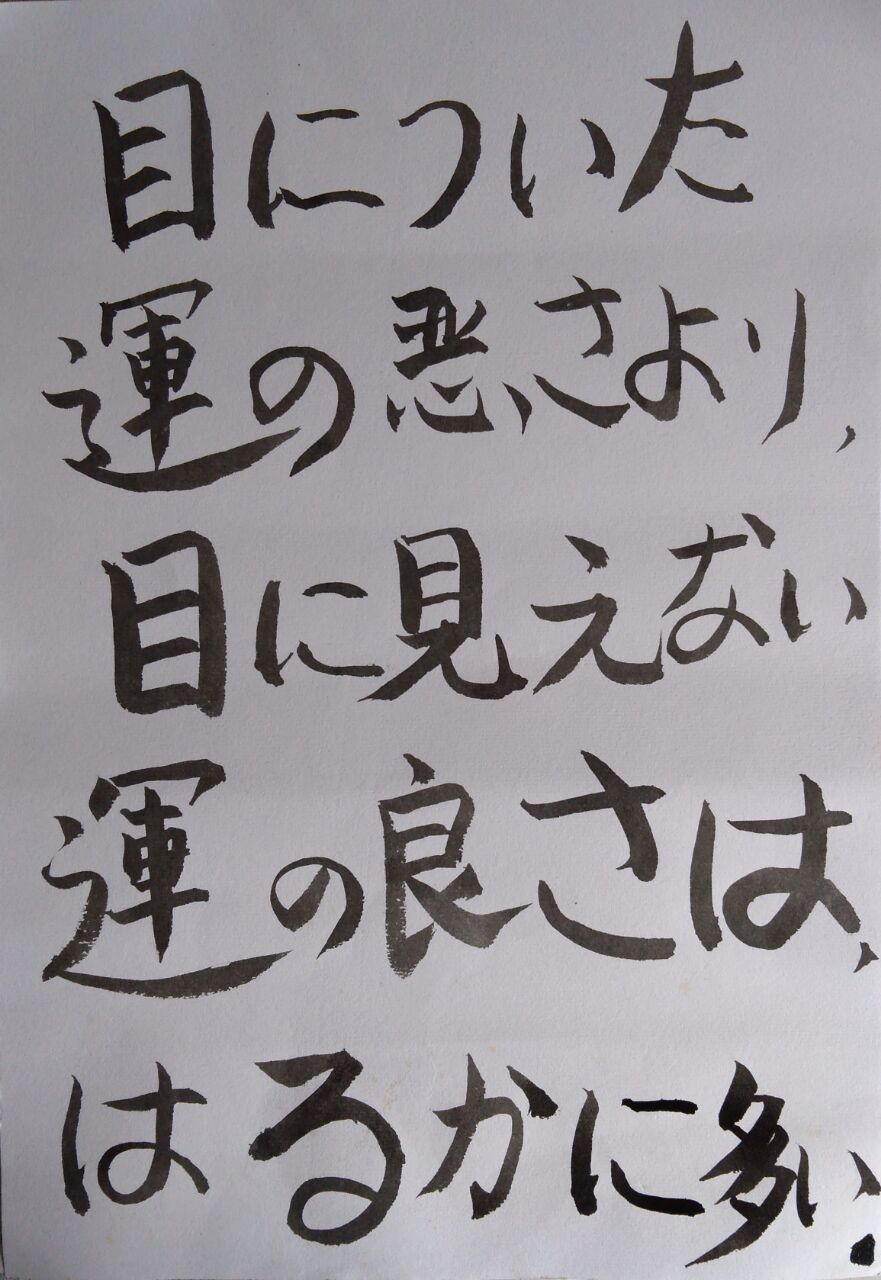 目についた
運の悪さより,
目に見えない
運の良さは,
はるかに多い.